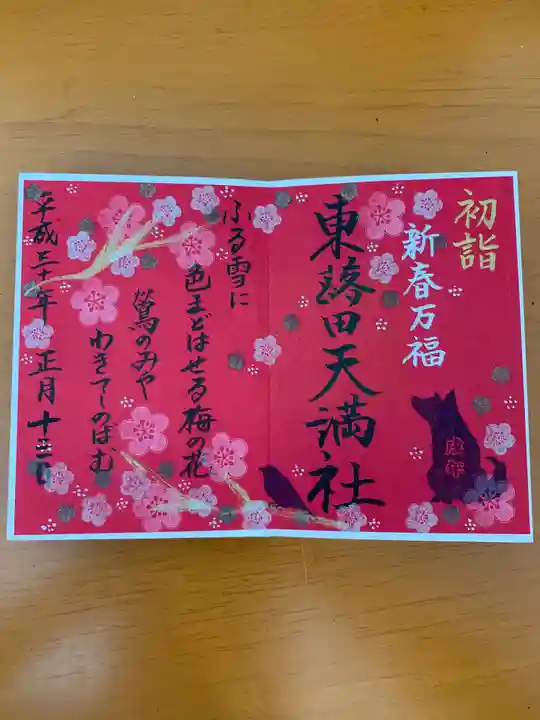 初詣
新春万福
戌年
東蕗田天満社
ふる雪に
色まどはせる梅の花
鶯のみや
わきてしのばむ
平成三十年 正月 十三日